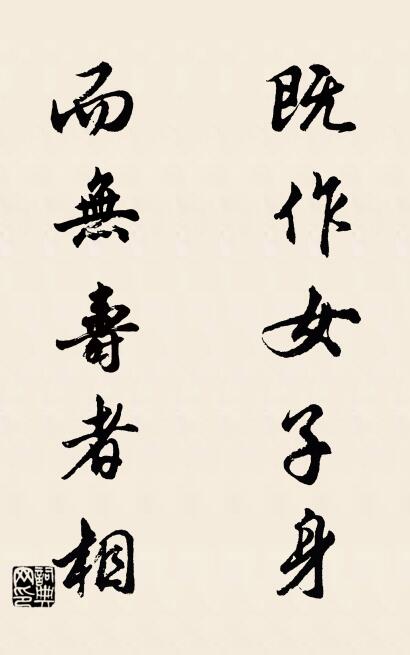 既作女子身
而無壽者相
詞典網印